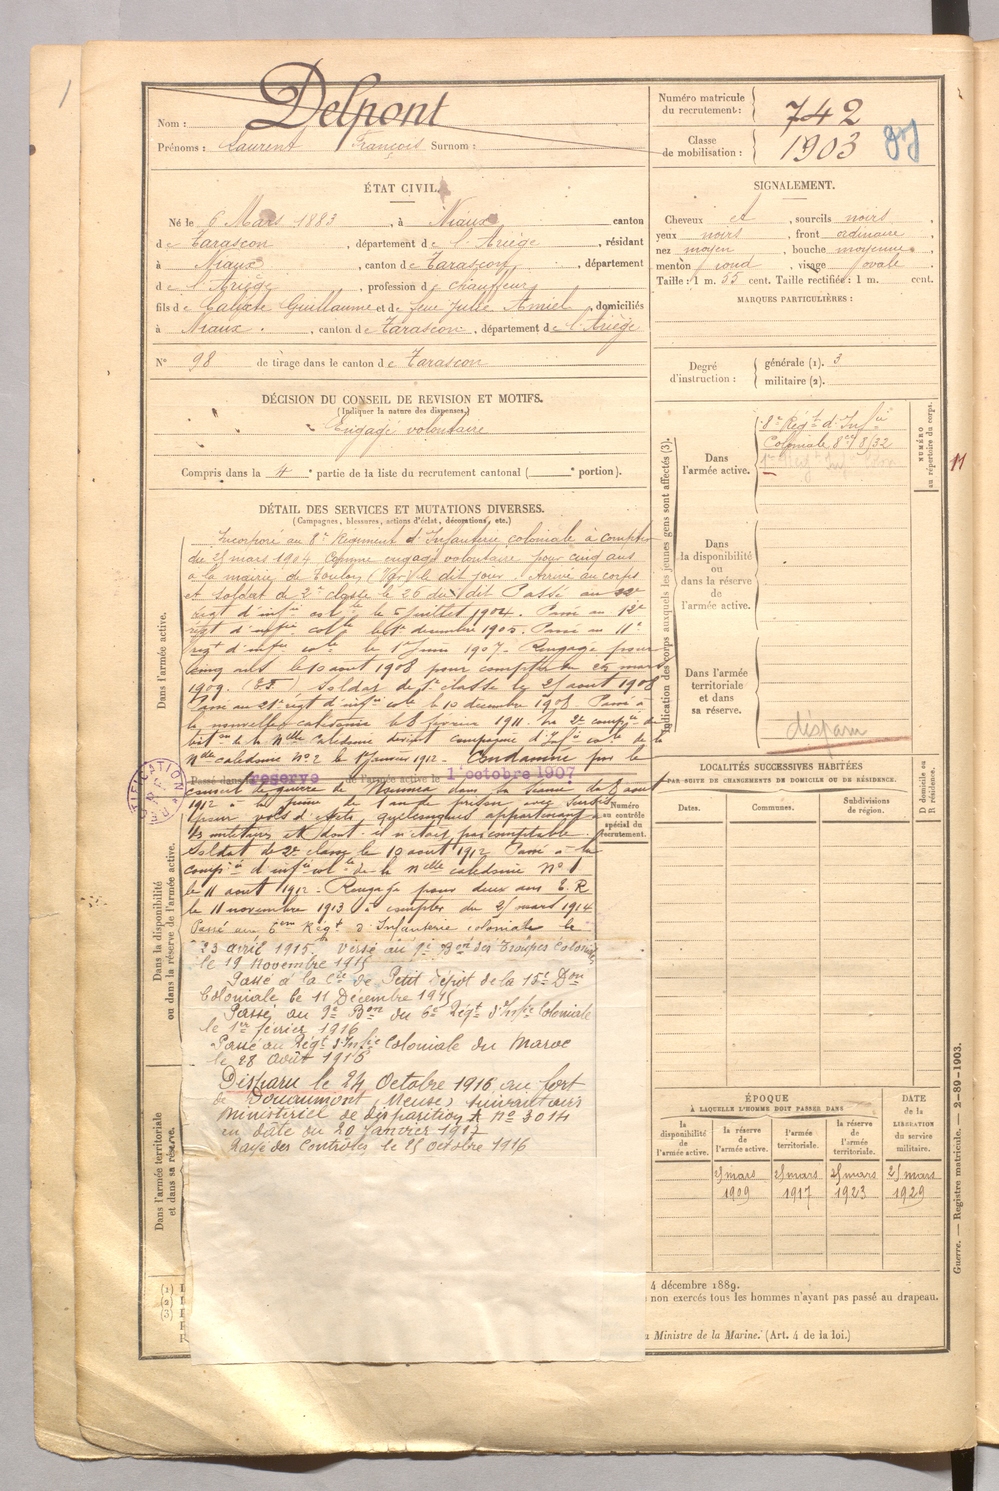 Nom : Delpont
Prénoms : Laurent François Surnom :
Numéro matricule du recrutement : 742
Classe de mobilisation : 1903
ÉTAT CIVIL.
Né le 6 Mars 1883, à Niaux canton
de Tarascon, département de l'Ariège, résidant
à Niaux, canton de Tarascon, département
de l'Ariège, profession de chauffeur
fils de Calixte Guillaume et de feue Julie Amiel, domiciliés
à Niaux, canton de Tarascon, département de l'Ariège
N° 98 de tirage dans le canton de Tarascon
SIGNALEMENT.
Cheveux et, sourcils noirs,
yeux noirs, front ordinaire,
nez moyen, bouche moyenne,
menton rond, visage ovale
Taille : 1 m. 55 cent. Taille rectifiée : 1 m. cent.
MARQUES PARTICULIÈRES :
Degré d'instruction : générale (1). 3
militaire (2).
DÉCISION DU CONSEIL DE REVISION ET MOTIFS.
(Indiquer la nature des dispenses.)
Engagé volontaire
Compris dans la 4e partie de la liste du recrutement cantonal ( e portion).
DÉTAIL DES SERVICES ET MUTATIONS DIVERSES.
(Campagnes, blessures, actions d'éclat, décorations, etc.)
Dans l'armée active.
Incorporé au 8e Régiment d'Infanterie coloniale à compter
du 25 mars 1904 Comme engagé volontaire pour cinq ans
à la mairie de Toulon (Var) le dit jour. Arrivé au corps
et Soldat de 2e classe le 26 du dit Passé au
régt d'infie colle le 5 juillet 1904. Passé au 12e
régt d'infie colle le 1er décembre 1905. Passé au 11e
régt d'infie colle le 1er Juin 1907. Rengagé pour
cinq ans le 10 aout 1908 pour compter du 25 mars
1909. Soldat de 1e classe le 25 aout 1908
Passé au 21e régt d'infie colle le 10 décembre 1908. Passé à
la nouvelle calédonie le 8 février 1911. La 2e compie du
baton de la Nelle Calédonie devient compagnie d'Infie colle de la
Nelle calédonie No 2 le 1er Janvier 1912. Condamné par le
Passé dans la réserve de l'armée active le 1 octobre 1907
conseil de guerre de Nouméa dans la séance du 8 aout
1912 à la peine de 1 an de prison avec sursis
pour vols d'effets, quelconques appartenant à
des militaires et dont il n'était pas comptable.
Soldat de 2e classe le 10 aout 1912 Passé à la
compie d'infie colle de la nelle calédonie No 1
le 11 aout 1912. Rengagé pour deux ans
le 11 novembre 1913 à compter du 25 mars 1914
Passé au 6eme Régt d'Infanterie coloniale le
23 avril 1915. Versé au 9e Bon des Troupes Coloniales
le 19 Novembre 1915
Passé à la Cie de Petit Dépot de la 15e Don
Coloniale le 11 Décembre 1915
Passé au 9e Bon du 6e Régt d'Infie Coloniale
le 1er février 1916
Passé au Régt d'Infie Coloniale du Maroc
le 28 Août 1916
Disparu le 24 Octobre 1916 au fort
de Douaumont (Meuse) suivant avis
Ministériel de disparition A No 3014
en date du 20 Janvier 1917
Rayé des Contrôles le 25 Octobre 1916
Dans la disponibilité ou dans la réserve de l'armée active.
Dans l'armée territoriale et dans sa réserve.
Numéro au contrôle spécial du recrutement.
Indication des corps auxquels les jeunes gens sont affectés (3).
Dans l'armée active.
8e Régt d'Infie
Coloniale 8e / 8/32
NUMÉRO au répertoire du corps.
Dans la disponibilité ou dans la réserve de l'armée active.
Dans l'armée territoriale et dans sa réserve.
disparu
LOCALITÉS SUCCESSIVES HABITÉES
PAR SUITE DE CHANGEMENTS DE DOMICILE OU DE RÉSIDENCE.
Dates. Communes. Subdivisions de région. D domicile ou R résidence.
ÉPOQUE
À LAQUELLE L'HOMME DOIT PASSER DANS
la disponibilité de l'armée active.
la réserve de l'armée active.
l'armée territoriale.
la réserve de l'armée territoriale.
DATE de la LIBÉRATION du service militaire.
25 mars 1909
25 mars 1917
25 mars 1923
25 mars 1929
4 décembre 1889.
non exercés tous les hommes n'ayant pas passé au drapeau.
Ministre de la Marine. (Art. 4 de la loi.)
(1)
(2)
(3)
Guerre. — Registre matricule. — 2-89-1903.